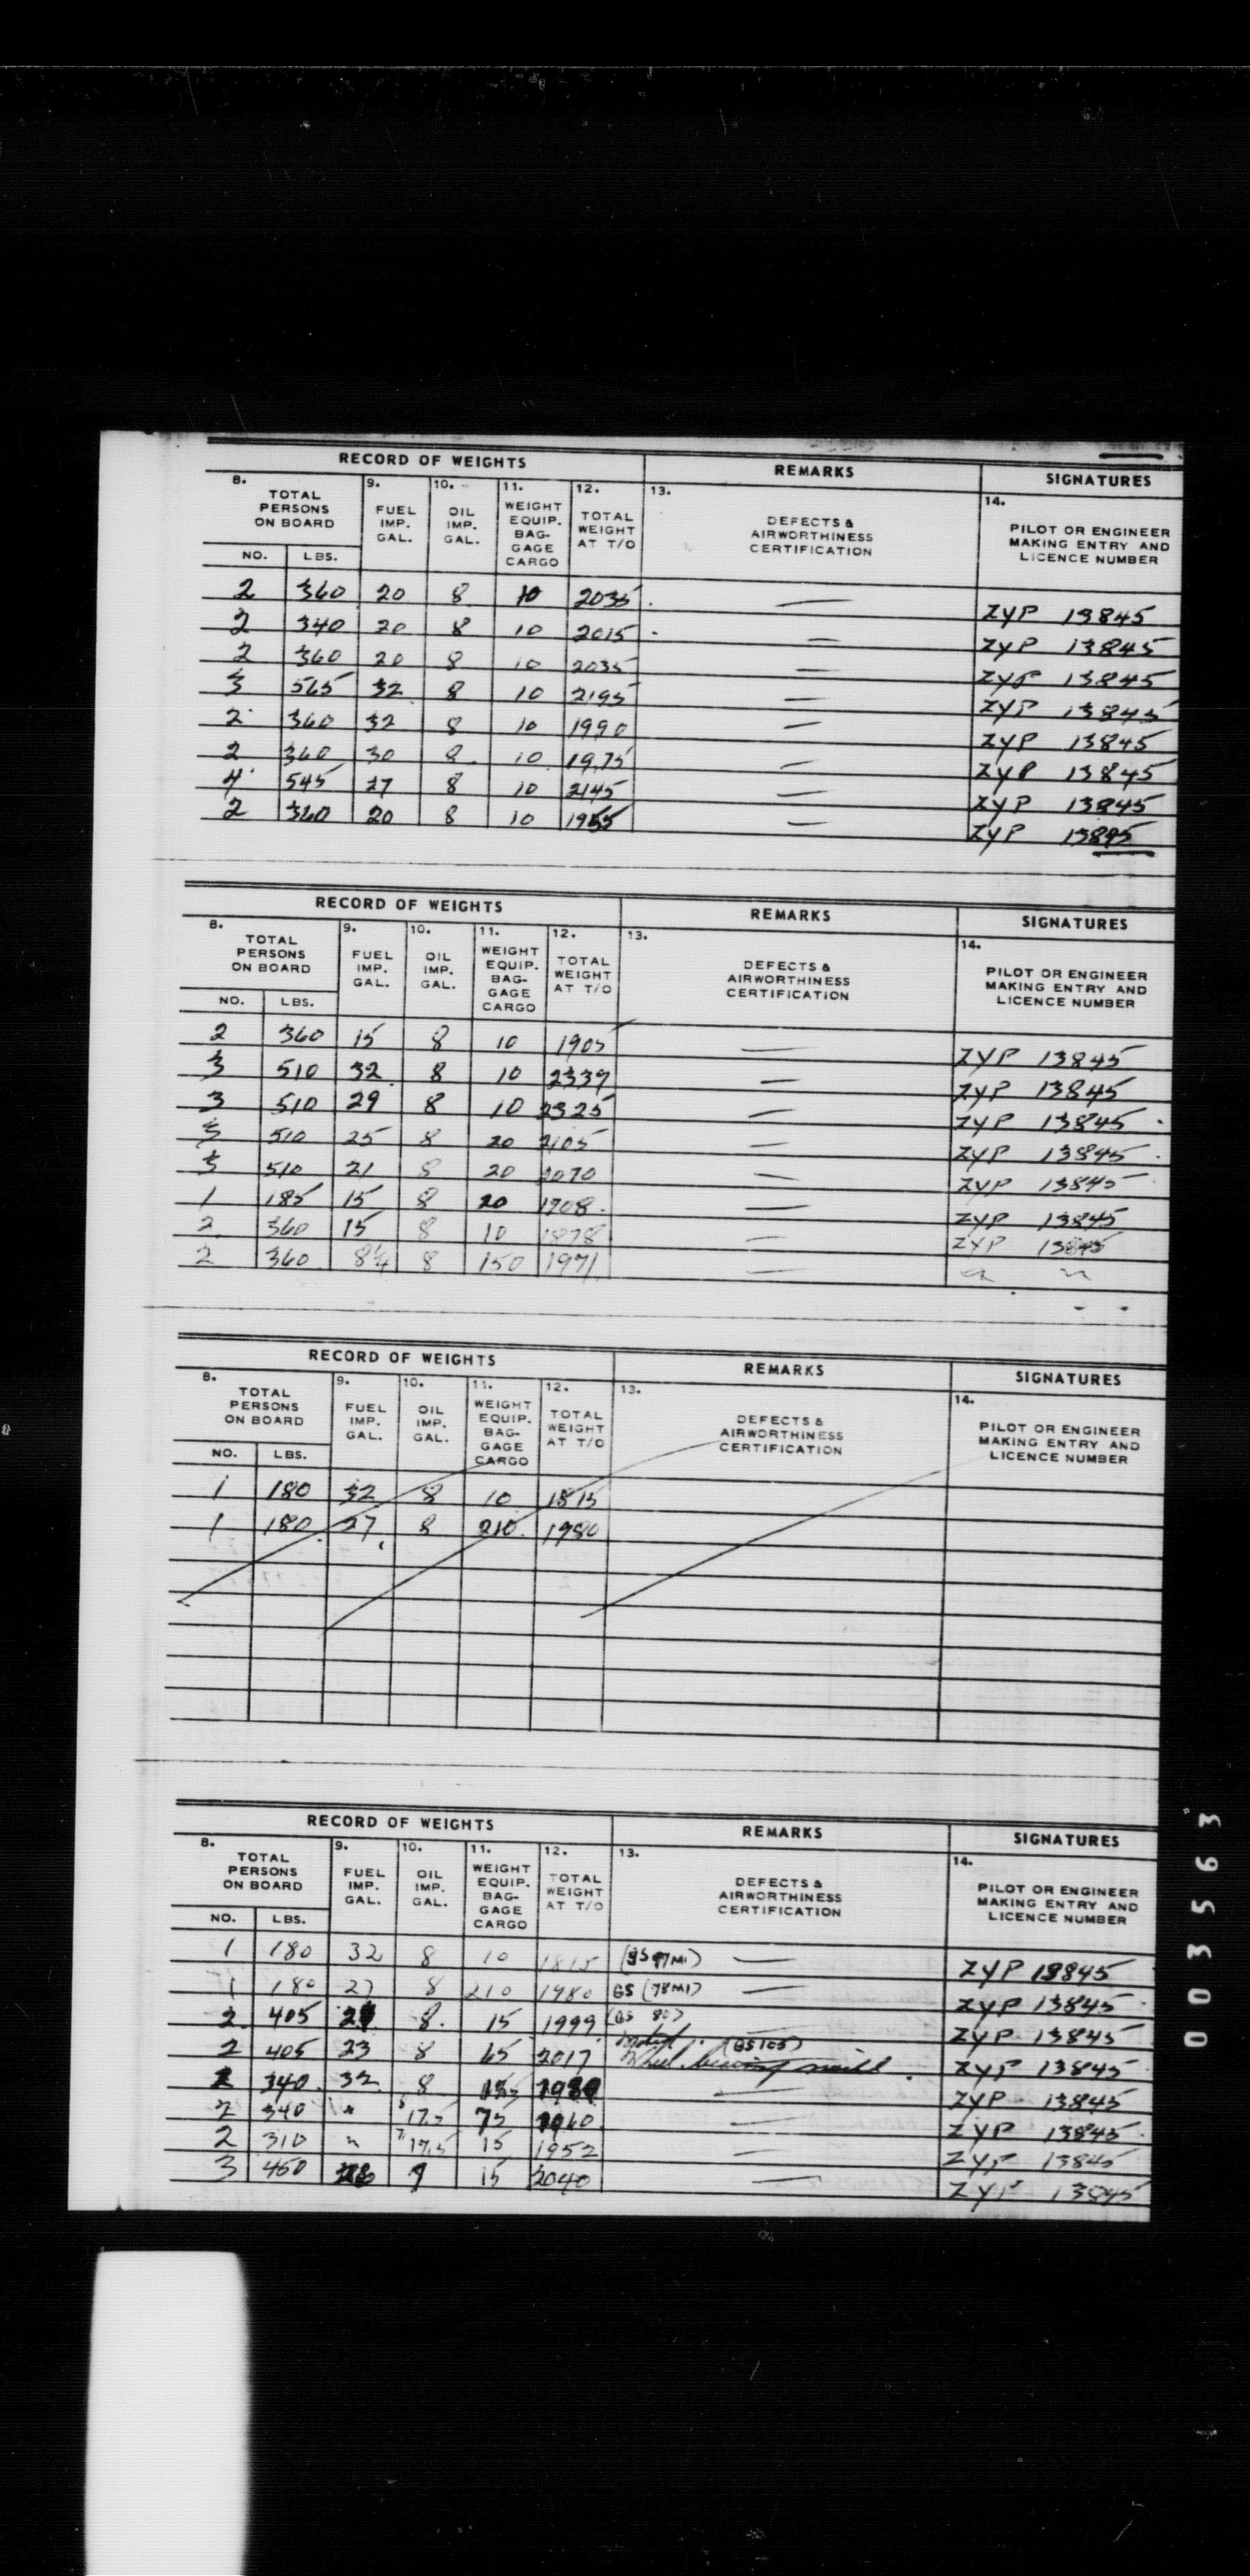 RECORD OF WEIGHTS REMARKS SIGNATURES
8. 9. 10. 11. 12. 13. 14.
TOTAL PERSONS ON BOARD FUEL IMP. GAL. OIL IMP. GAL. WEIGHT EQUIP. BAG- GAGE CARGO TOTAL WEIGHT AT T/O DEFECTS & AIRWORTHINESS CERTIFICATION PILOT OR ENGINEER MAKING ENTRY AND LICENCE NUMBER
NO. LBS.
2 360 20 8 10 2035 — ZYP 13845
2 340 20 8 10 2015 — ZYP 13845
2 360 20 8 10 2035 — ZYP 13845
3 565 32 8 10 2195 — ZYP 13845
2 360 32 8 10 1990 — ZYP 13845
2 360 30 8 10 1975 — ZYP 13845
4 545 27 8 10 2145 — ZYP 13845
2 360 20 8 10 1955 — ZYP 13845
RECORD OF WEIGHTS REMARKS SIGNATURES
8. 9. 10. 11. 12. 13. 14.
TOTAL PERSONS ON BOARD FUEL IMP. GAL. OIL IMP. GAL. WEIGHT EQUIP. BAG- GAGE CARGO TOTAL WEIGHT AT T/O DEFECTS & AIRWORTHINESS CERTIFICATION PILOT OR ENGINEER MAKING ENTRY AND LICENCE NUMBER
NO. LBS.
2 360 15 8 10 1905 — ZYP 13845
3 510 32 8 10 2339 — ZYP 13845
3 510 29 8 10 2325 — ZYP 13845
3 510 25 8 20 2105 — ZYP 13845
3 510 21 8 20 2070 — ZYP 13845
1 185 15 8 20 1708 — ZYP 13845
2 360 15 8 10 1878 — ZYP 13845
2 360 8 10 150 1971 —
RECORD OF WEIGHTS REMARKS SIGNATURES
8. 9. 10. 11. 12. 13. 14.
TOTAL PERSONS ON BOARD FUEL IMP. GAL. OIL IMP. GAL. WEIGHT EQUIP. BAG- GAGE CARGO TOTAL WEIGHT AT T/O DEFECTS & AIRWORTHINESS CERTIFICATION PILOT OR ENGINEER MAKING ENTRY AND LICENCE NUMBER
NO. LBS.
1 180 32 8 10 1815
1 180 27 8 210 1980
RECORD OF WEIGHTS REMARKS SIGNATURES
8. 9. 10. 11. 12. 13. 14.
TOTAL PERSONS ON BOARD FUEL IMP. GAL. OIL IMP. GAL. WEIGHT EQUIP. BAG- GAGE CARGO TOTAL WEIGHT AT T/O DEFECTS & AIRWORTHINESS CERTIFICATION PILOT OR ENGINEER MAKING ENTRY AND LICENCE NUMBER
NO. LBS.
1 180 32 8 10 1815 — ZYP 13845
1 180 27 8 210 1980 GS (78MI) — ZYP 13845
2 405 8 15 1999 (GS 80) ZYP 13845
2 405 23 8 65 2017 (GS 105) ZYP 13845
340 32 8 — ZYP 13845
2 340 17.5 75 — ZYP 13845
2 310 17.5 15 1952 — ZYP 13845
3 450 9 15 2040 — ZYP 13845
003563